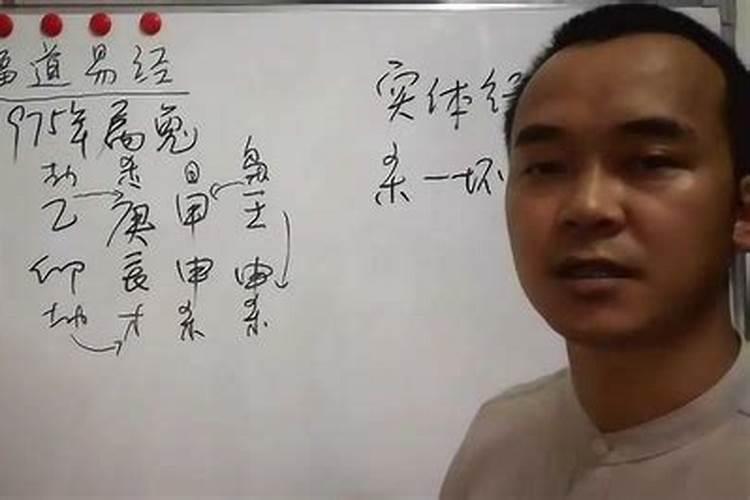 福道易经
975年属兔
劫 杀 日 枭
乙 庚 甲 壬
卯 辰 申 申
劫 才 杀 杀
实体经
杀一坏